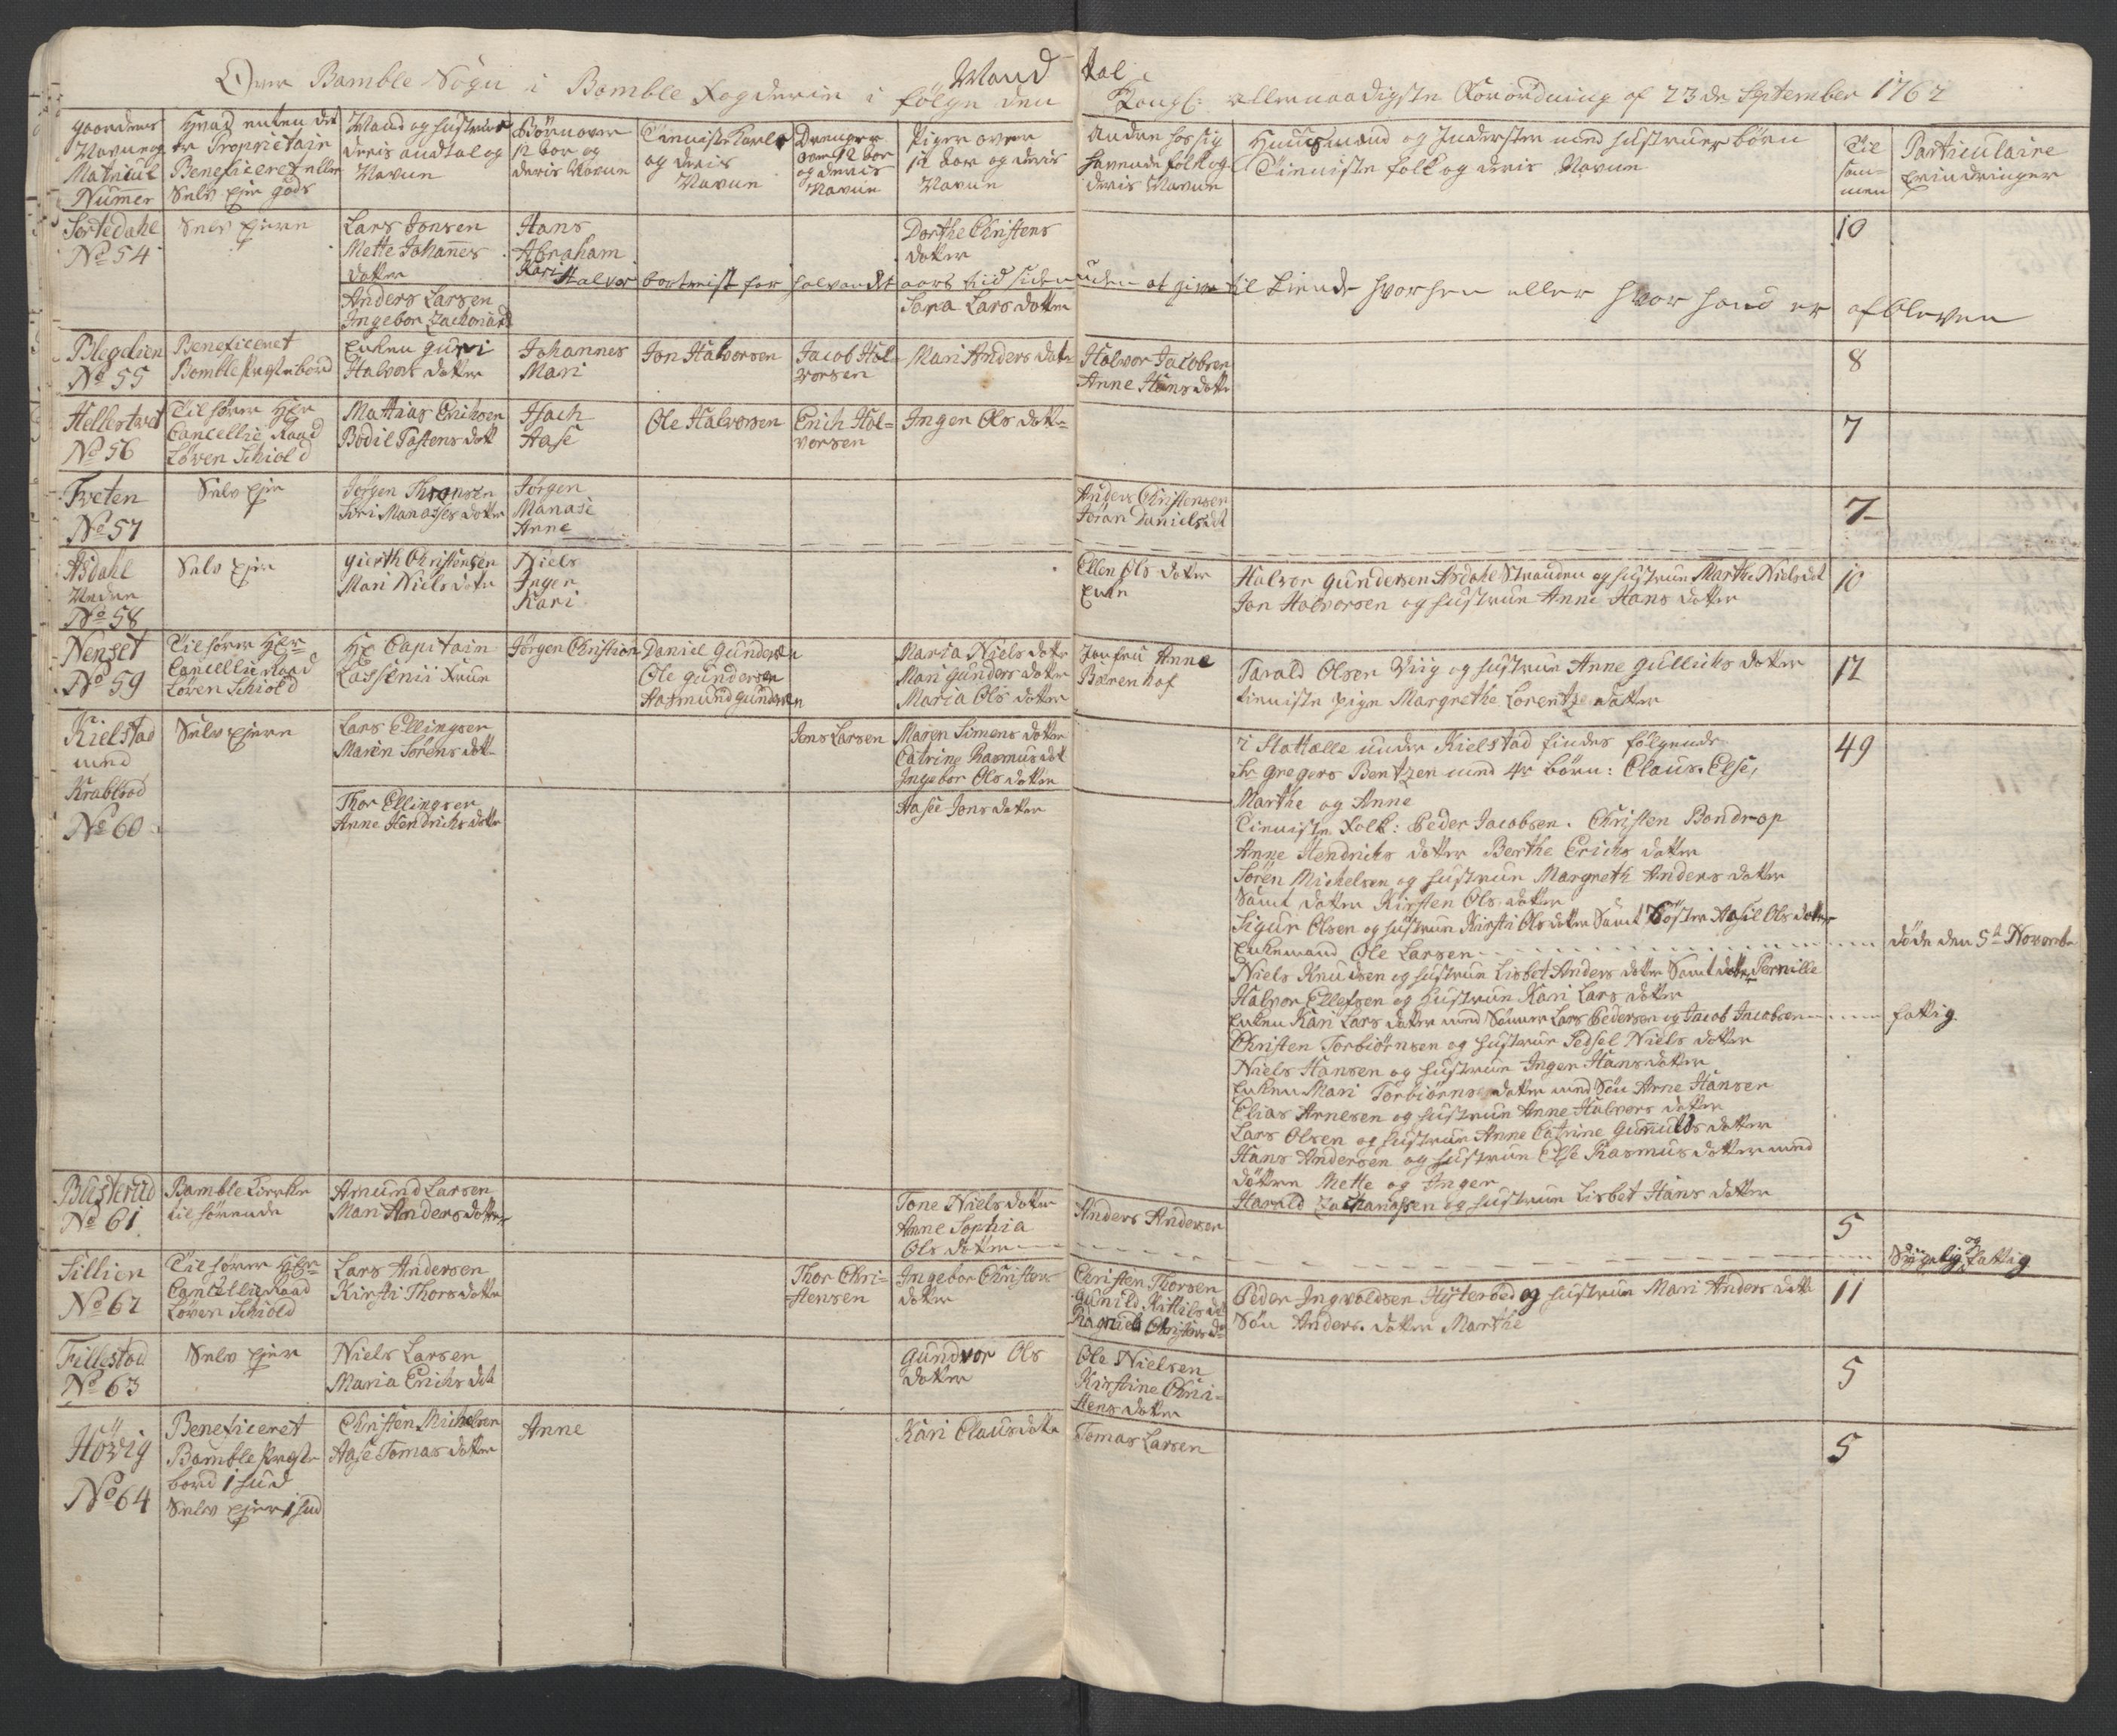 Mand Tal
Over Bamble Sogn i Bamble Fogderie i følge den Kongl: allernaadigste Forordning af 23de September 1762
gaardenes Navne og Matricul Numer
Hvad enten det er Proprietair Beneficeret eller Selv Ejer gods
Mand og Hustrue deris andtal og Navne
Børn over 12 aar og deris Navne
Tieniste Karle og deris Navne
Drenger over 12 aar og deris Navne
Piger over 12 aar og deris Navne
Andre hos sig havende folk og deris Navne
Huusmænd og Inderster med hustruer børn Tieniste folk og deris Navne
Til sammen
Particulaire Erindringer
Sortedahl
No 54
Selv Ejere
Lars Jonsen
Mette Johannes
datter
Hans
Abraham
Kari
Dorthe Christens
datter
10
Halvor bortreist for halvandet aars tiid siden uden at give til kiende hvorhen eller hvor hand er afbleven
Anders Larsen
Ingebor Zachariæd
Sara Lars datter
Blegelien
No 55
Beneficeret
Bamble Præstebord
Enken Guri
Halvors datter
Johannes
Mari
Jon Halvorsen
Jacob Hal-
vorsen
Mari Anders datr
Halvor Jacobsen
Anne Hans datr
8
Hellestvet
No 56
Tilhører Hr
Cancellie Raad
Løven Schiold
Mathias Erichsen
Bodil Tostens datt
Isach
Aase
Ole Halvorsen
Erich Hal-
vorsen
Inger Ols datter
7
Tveten
No 57
Selv Ejer
Jørgen Thronsen
Siri Manasses datter
Jørgen
Manase
Anne
Anders Christensen
Joran Daniels dt
7
Asdahl
Nedre
No 58
Selv Ejer
Gierth Christensen
Mari Niels datr
Niels
Inger
Kari
Ellen Ols datter
Even
Halvor Gundersen Asdahl Stranden og hustrue Marthe Niels dat
Jon Halvorsen og hustrue Anne Hans datter
10
Nenset
No 59
Tilhører Hr
Cancellie Raad
Løven Schiold
Hr Capitain
Lassenii Frue
Jørgen Christian
Daniel Gundersen
Ole Gundersen
Aasmund Gundersen
Maria Niels datr
Mari Gunders datr
Maria Ols datter
Jomfru Anne
Bærenhof
Tarald Olsen Viig og hustrue Anne Gullichs datter
tieniste pige Margrethe Lorentze datter
12
Kielstad
med
Krabberød
No 60
Selv Ejere
Lars Ellingsen
Maren Sørens datr
Jens Larsen
Maren Simens datter
Catrine Rasmus dat
Ingebor Ols datter
Thor Ellingsen
Anne Hendrichs datr
Aase Jons datter
i Stathelle under Kielstad findes følgende
Sr Gregers Bentzen med 4re børn: Claus, Else,
Marthe og Anne
Tieniste Folk: Peder Jacobsen. Christen Bondrop
Anne Hendrichs datter Berthe Erichs datter
Søren Michelsen og hustrue Margreth Anders datter
Samt datter Kirsten Ols datter
Sigur Olsen og hustrue Kirsti Ols datter Samt Søster Aasil Ols datter
Enkemand Ole Larsen
Niels Knudsen og hustrue Lisbet Anders datter Samt datter Pernille
Halvor Ellefsen og hustrue Kari Lars datter
Enken Kari Lars datter med Sønner Lars Pedersen og Jacob Jacobsen
Christen Torbiørnsen og hustrue Sedsel Niels datter
Niels Hansen og hustrue Inger Hans datter
Enken Mari Torbiørns datter med Søn Arne Hansen
Elias Arnesen og hustrue Anne Halvors datter
Lars Olsen og hustrue Anne Catrine Gunnulds datter
Hans Andersen og hustrue Else Rasmus datter med
døttre Mette og Inger
Harald Zachariassen og hustrue Lisbet Hans datter
49
døde den 5te Novembr
fattig
Busterud
No 61
Bamble Kierke
tilhørende
Amund Larsen
Mari Anders datter
Tone Niels datter
Anne Sophia
Ols datter
Anders Andersen
5
Svagelig og fattig
Tillien
No 62
Tilhører Hr
Cancellie Raad
Løven Schiold
Lars Andersen
Kirsti Thors datter
Thor Chri-
stensen
Ingebor Christens
datter
Christen Thorsen
Gunild Kittils dt
Ragnild Christens dr
Peder Ingvoldsen Hysterød og hustrue Mari Anders datr
Søn Anders. datter Marthe
11
Fillestad
No 63
Selv Ejer
Niels Larsen
Maria Erichs dat
Gundvor Ols
datter
Ole Nielsen
Kirstine Chri-
stens datter
5
Høvig
No 64
Beneficeret
Bamble Præste
bord 1 hud
Selv Ejer 1 hud
Christen Michelsen
Aase Tomas datter
Anne
Kari Claus datter
Tomas Larsen
5